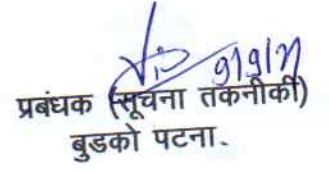 प्रबंधक (सूचना तकनीकी)
बुडको पटना.